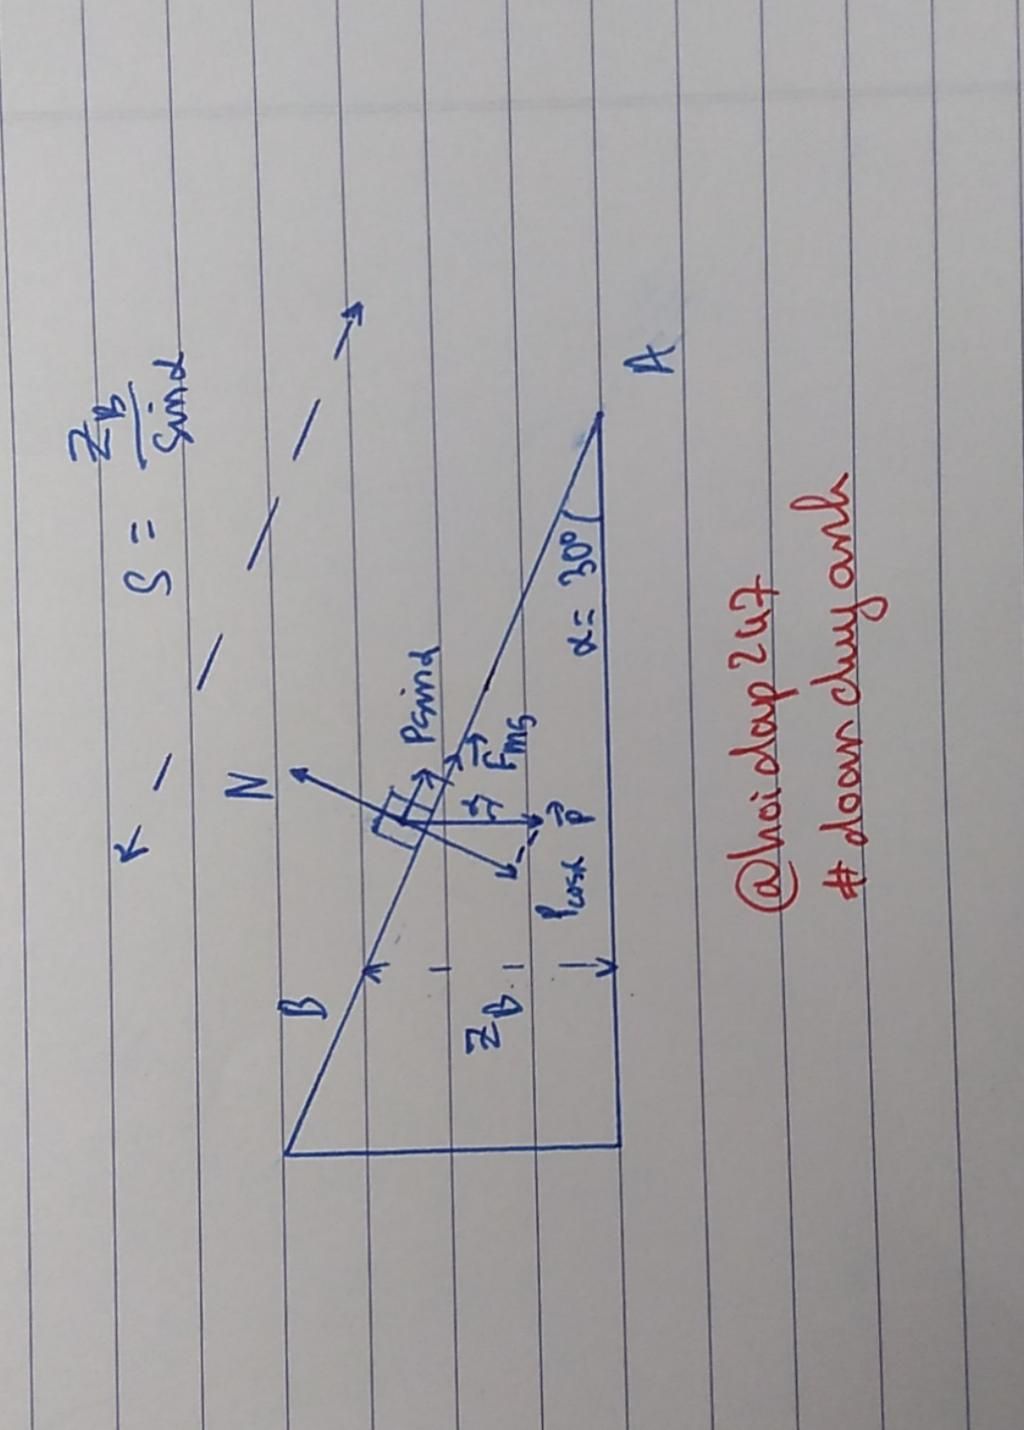 S = Z_B / sinα
N
Psinα
B
F⃗ms
α
Z_B
Pcosα
P⃗
α = 30°
A
@hoidap247
#doanduyanh